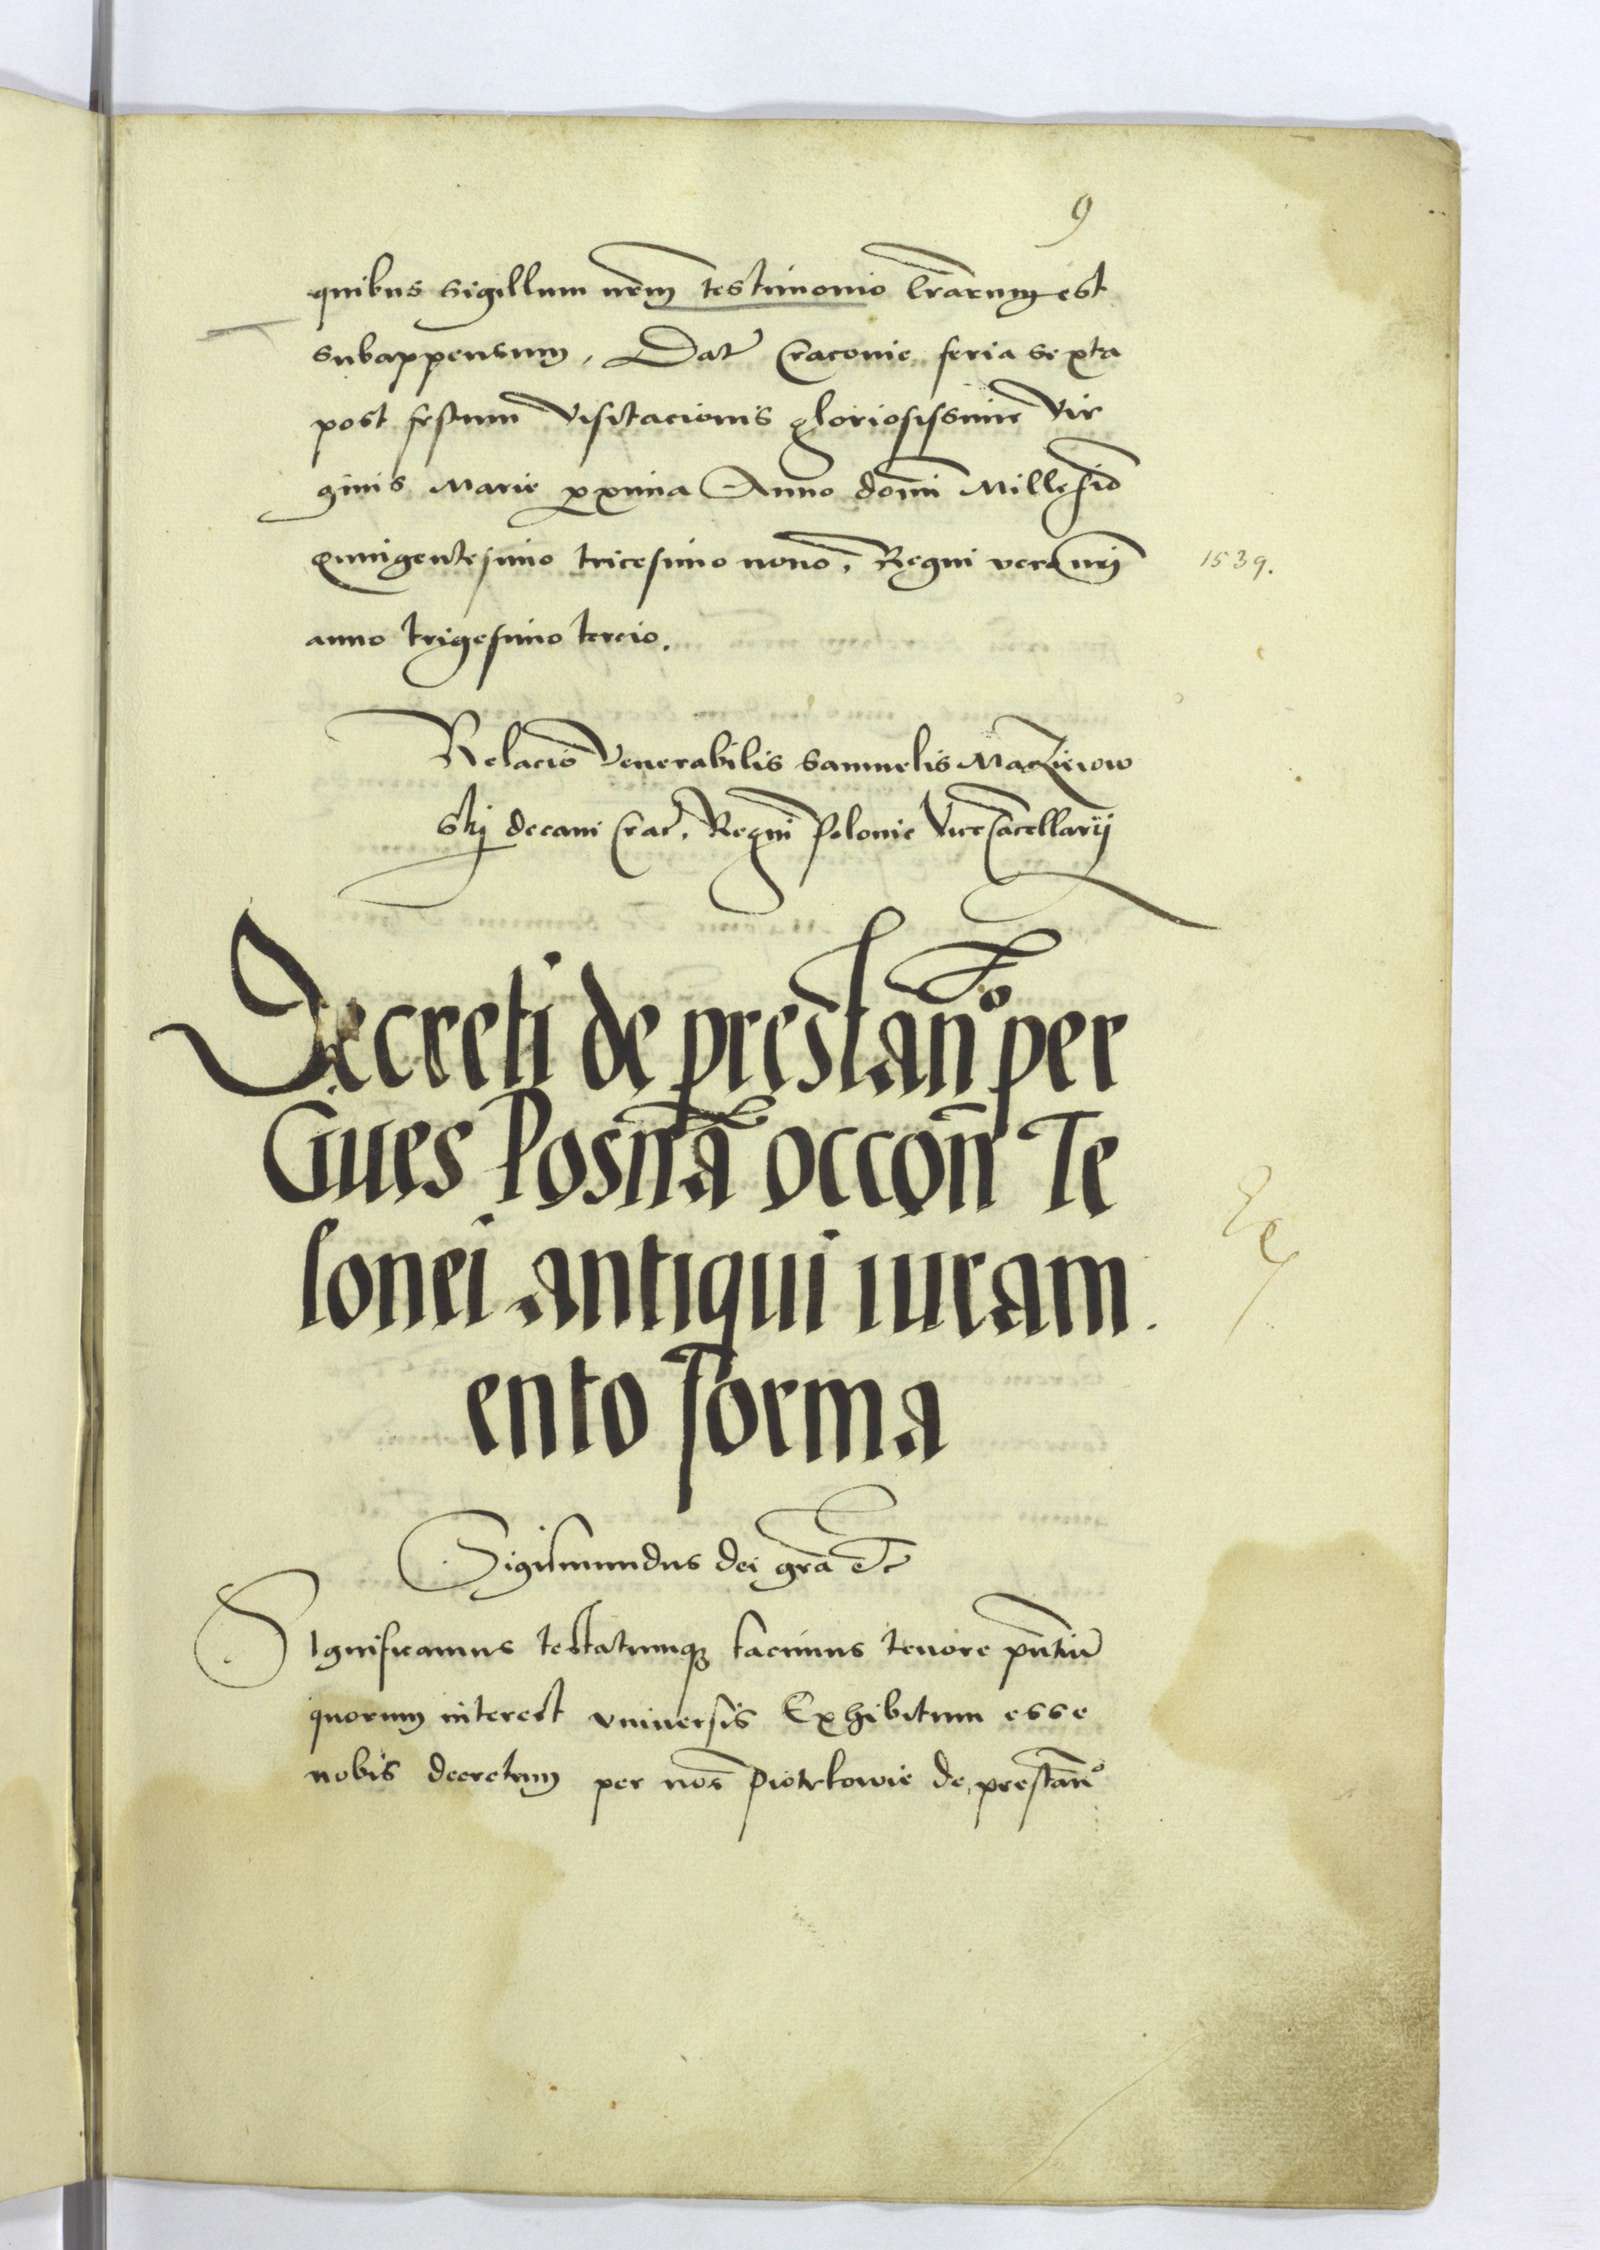 9
quibus sigillum nrm̄ testimonio lrārum est
subappensum, Dat̄ Cracovie feria sexta
post festum Visitacionis gloriosissime Vir
ginis Marie pxima Anno domi Millesimo
Quingentesimo tricesimo nono, Regni vero nrj
1539.
anno trigesimo tercio.
Relacio Venerabilis Samuelis Macziiow
skj decani Crac̄. Regni Polonie Vicecancellarij
Decreti de prestan̄o per
Ciues Posnā occōn Te
lonei antiqui iuram
ento forma
Sigismundus dei grā etc̄
Significamus testatumq facimus tenore pn̄tiū
quorum interest vniuersis Exhibitum esse
nobis decretum per nos Piotrkowie de prestan̄o